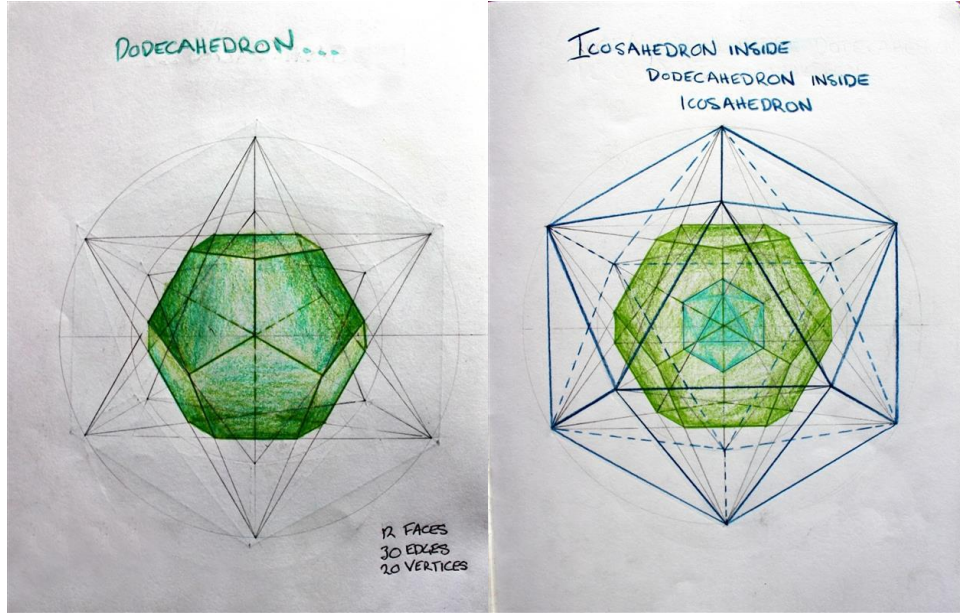 DODECAHEDRON...
12 FACES
30 EDGES
20 VERTICES
ICOSAHEDRON INSIDE
DODECAHEDRON INSIDE
ICOSAHEDRON